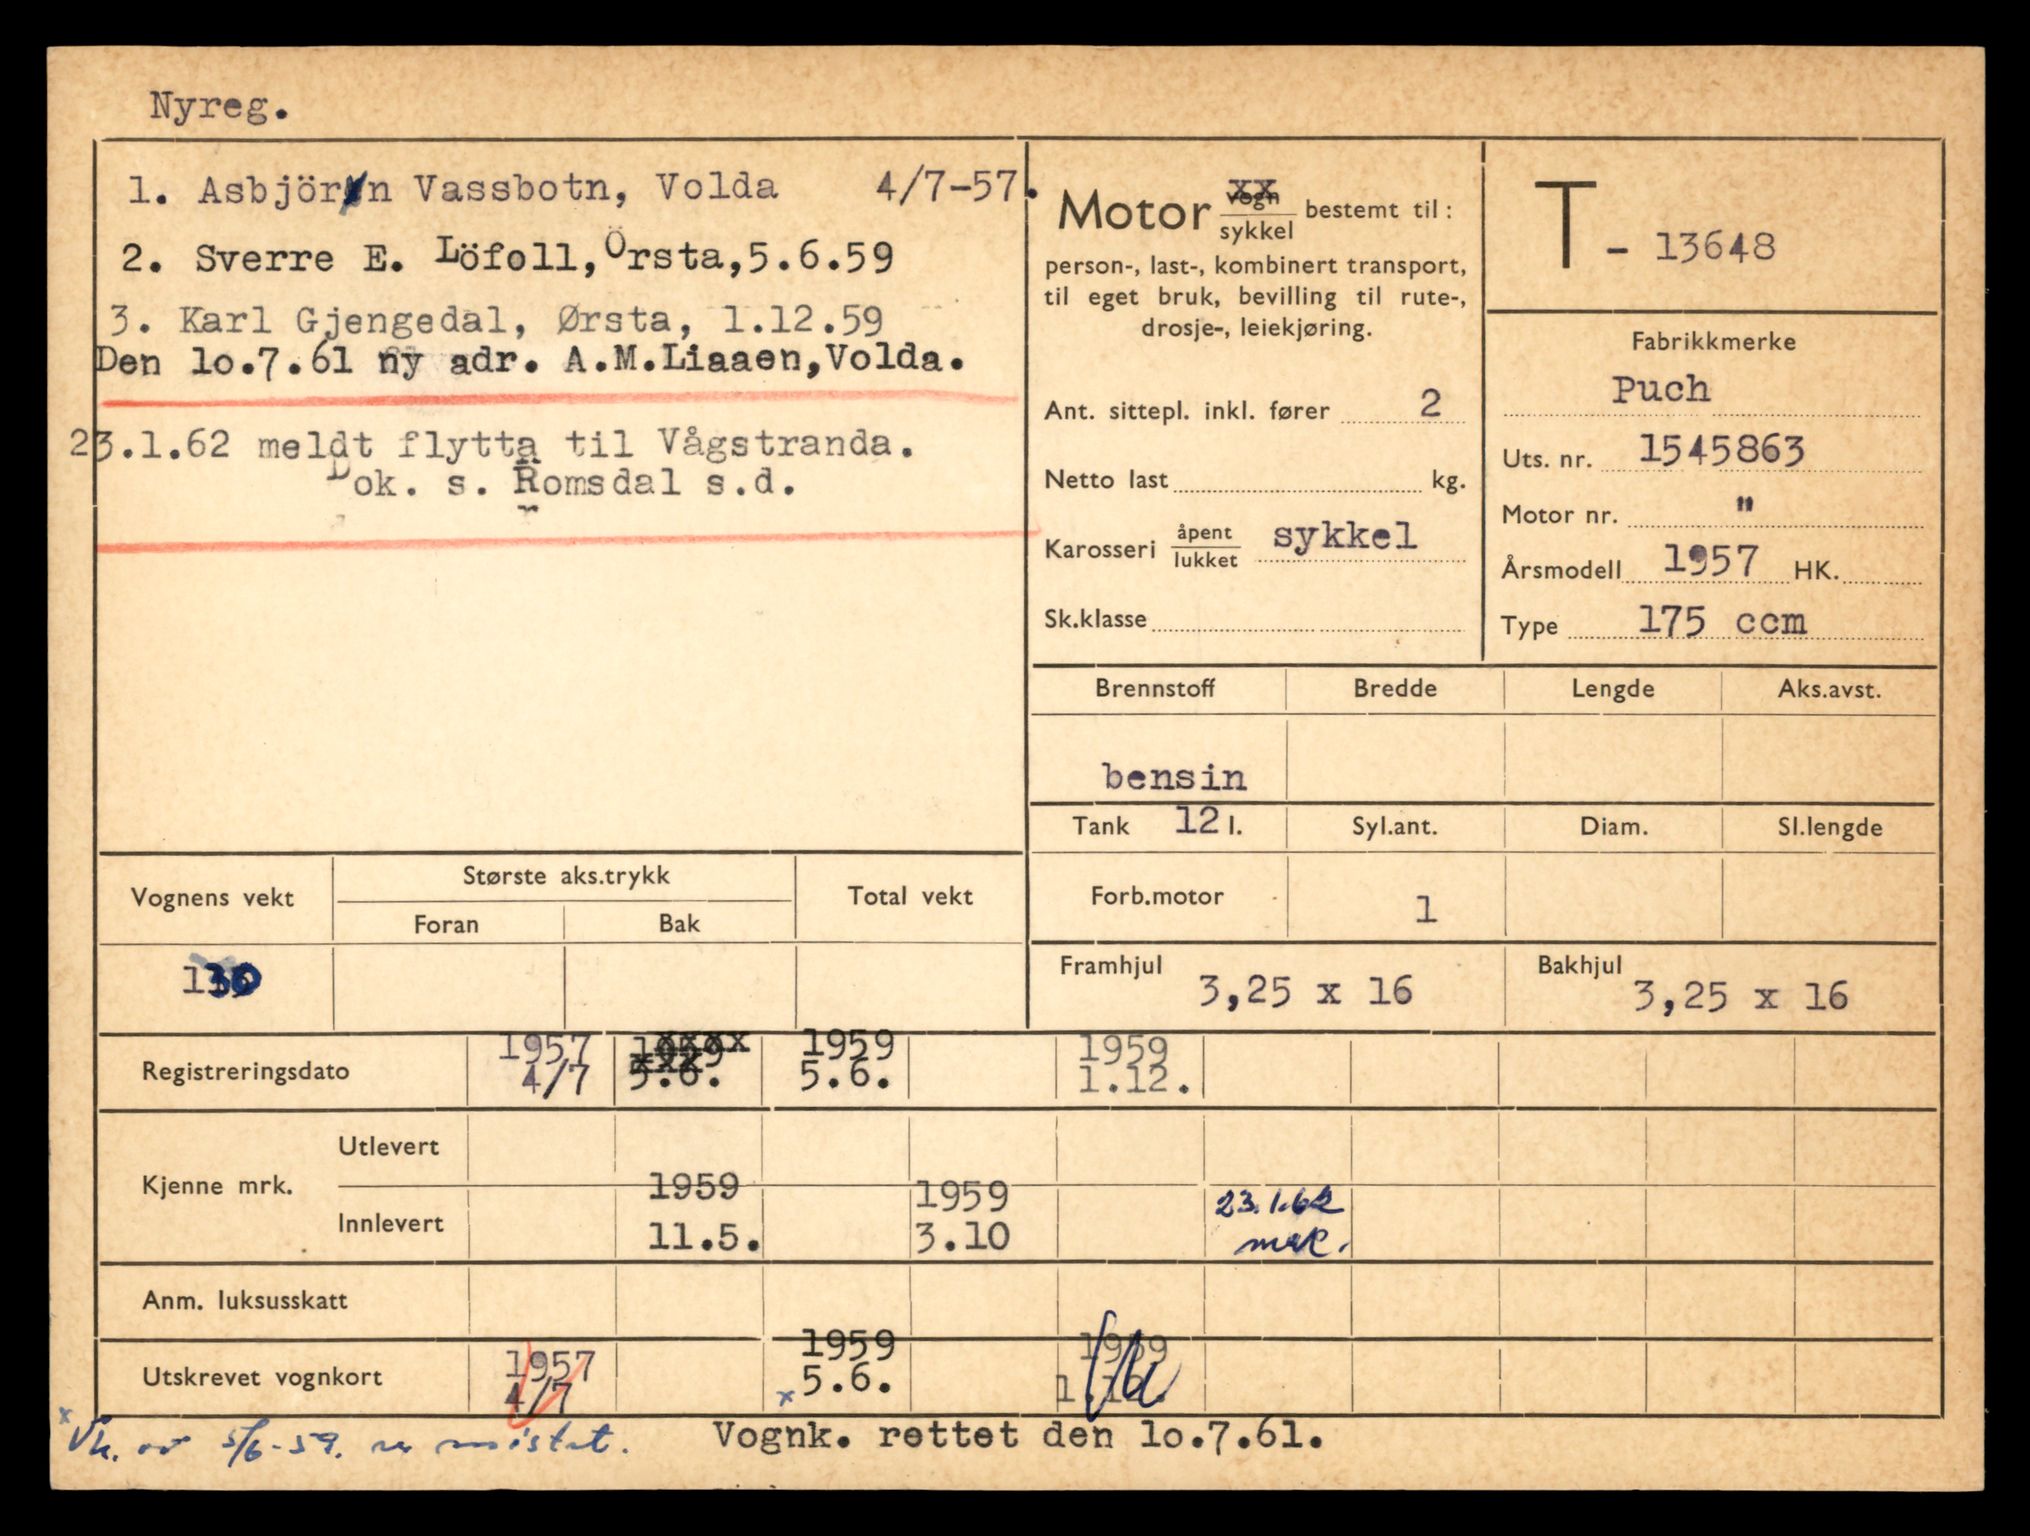 Nyreg.
1. Asbjörn Vassbotn, Volda 4/7-57.
2. Sverre E. Löfoll, Örsta, 5.6.59
3. Karl Gjengedal, Ørsta, 1.12.59
Den 10.7.61 ny adr. A.M.Liaaen, Volda.
23.1.62 meldt flytta til Vågstranda.
Dok. s. Romsdal s.d.
Motor vogn/sykkel bestemt til:
person-, last-, kombinert transport,
til eget bruk, bevilling til rute-,
drosje-, leiekjøring.
Ant. sittepl. inkl. fører 2
Netto last kg.
Karosseri åpent/lukket sykkel
Sk.klasse
T - 13648
Fabrikkmerke
Puch
Uts. nr. 1545863
Motor nr. "
Årsmodell 1957 HK.
Type 175 ccm
Brennstoff Bredde Lengde Aks.avst.
bensin
Tank 12 l. Syl.ant. Diam. Sl.lengde
Forb.motor 1
Framhjul 3,25 x 16 Bakhjul 3,25 x 16
Vognens vekt Største aks.trykk Total vekt
Foran Bak
130
Registreringsdato 1957 1959 1959 1959
4/7 5.6. 5.6. 1.12.
Kjenne mrk. Utlevert
Innlevert 1959 1959 23.1.62
11.5. 3.10 mrk.
Anm. luksusskatt
Utskrevet vognkort 1957 1959 1959
4/7 x 5.6. 1.12.
x Vk. av 5/6-59. er mistet. Vognk. rettet den 10.7.61.